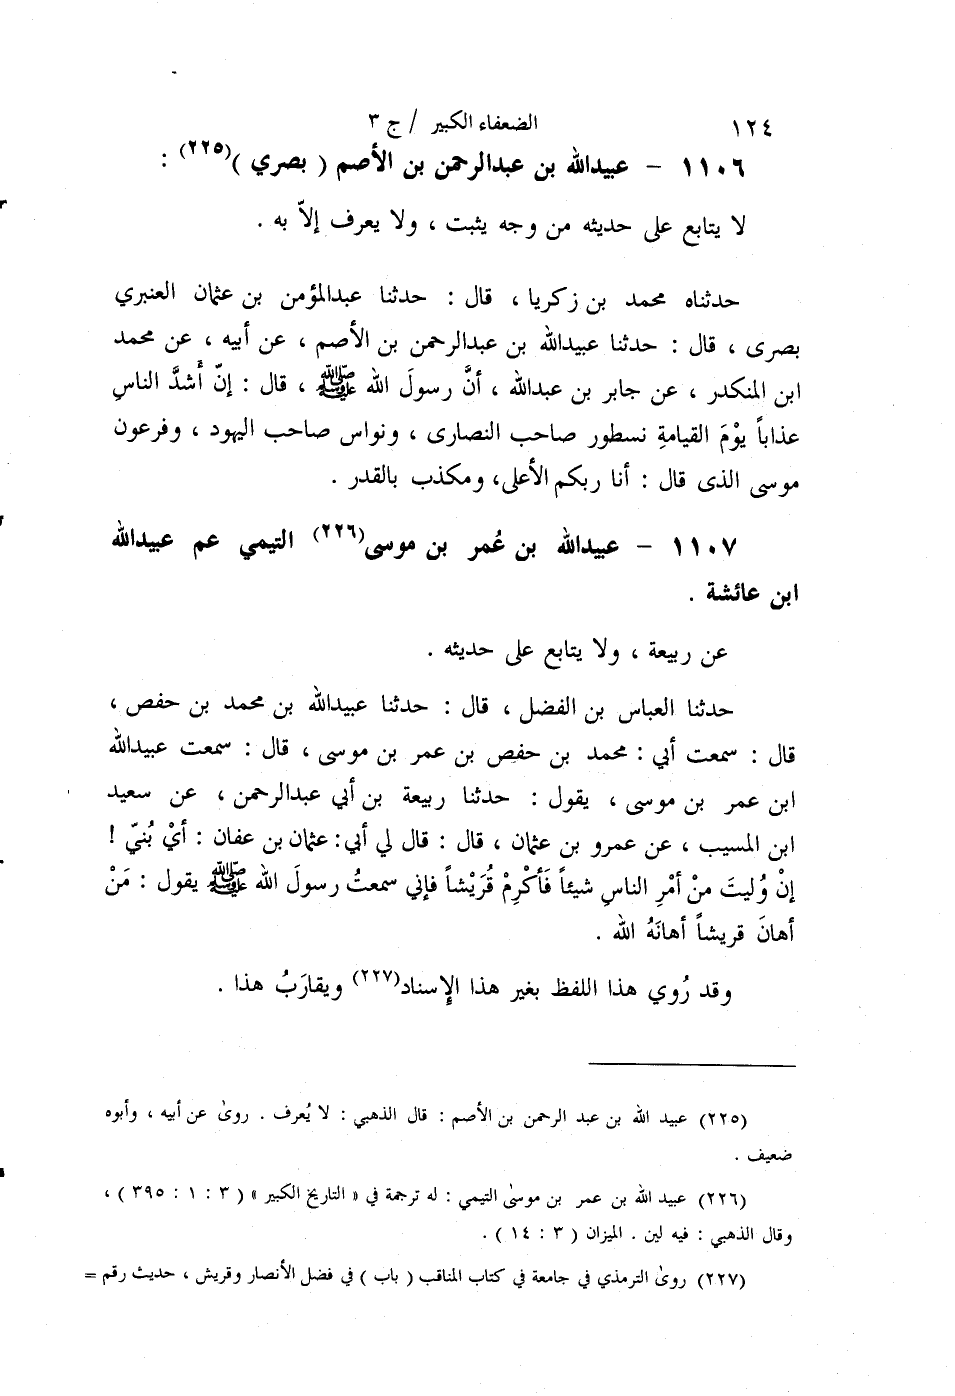 ١٢٤ الضعفاء الكبير / ج ٣
١١٠٦ – عبيدالله بن عبدالرحمن بن الأصم ( بصري )(٢٢٥) :
لا يتابع على حديثه من وجه يثبت ، ولا يعرف إلاّ به .
حدثناه محمد بن زكريا ، قال : حدثنا عبدالمؤمن بن عثمان العنبري
بصرى ، قال : حدثنا عبيدالله بن عبدالرحمن بن الأصم ، عن أبيه ، عن محمد
ابن المنكدر ، عن جابر بن عبدالله ، أنَّ رسولَ الله ﷺ ، قال : إنّ أشدَّ الناسِ
عذاباً يوْمَ القيامةِ نسطور صاحب النصارى ، ونواس صاحب اليهود ، وفرعون
موسى الذى قال : أنا ربكم الأعلى، ومكذب بالقدر .
١١٠٧ – عبيدالله بن عُمر بن موسى(٢٢٦) التيمي عم عبيدالله
ابن عائشة .
عن ربيعة ، ولا يتابع على حديثه .
حدثنا العباس بن الفضل ، قال : حدثنا عبيدالله بن محمد بن حفص ،
قال : سمعت أبي : محمد بن حفص بن عمر بن موسى ، قال : سمعت عبيدالله
ابن عمر بن موسى ، يقول : حدثنا ربيعة بن أبي عبدالرحمن ، عن سعيد
ابن المسيب ، عن عمرو بن عثمان ، قال : قال لي أبي: عثمان بن عفان : أيْ بُنيّ !
إنْ وُليتَ منْ أمْرِ الناسِ شيئاً فَأكْرِمْ قُرَيْشاً فإني سمعتُ رسولَ الله ﷺ يقول : مَنْ
أهانَ قريشاً أهانَهُ الله .
وقد رُوي هذا اللفظ بغير هذا الإسناد(٢٢٧) ويقارَبُ هذا .
(٢٢٥) عبيد الله بن عبد الرحمن بن الأصم : قال الذهبي : لا يُعرف . روىٰ عن أبيه ، وأبوه
ضعيف .
(٢٢٦) عبيد الله بن عمر بن موسىٰ التيمي : له ترجمة في « التاريخ الكبير » ( ٣ : ١ : ٣٩٥ ) ،
وقال الذهبي : فيه لين . الميزان ( ٣ : ١٤ ) .
(٢٢٧) روىٰ الترمذي في جامعة في كتاب المناقب ( باب ) في فضل الأنصار وقريش ، حديث رقم =